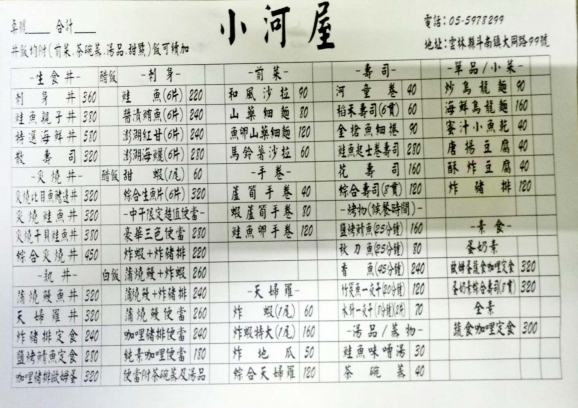 小河屋
電話：05-5978299
地址：雲林縣斗南鎮大同路99號
桌號____ 合計____
丼飯均附（前菜.茶碗蒸.湯品.甜點）飯可續加
-生食丼- 醋飯
刺身丼 360
鮭魚親子丼 330
特選海鮮丼 530
散壽司 320
-炙燒丼- 醋飯
炙燒比目魚鰭邊丼 320
炙燒鮭魚丼 320
炙燒干貝鮭魚丼 380
綜合炙燒丼 450
-熟丼- 白飯
蒲燒鰻魚丼 320
天婦羅丼 320
炸豬排定食 240
鹽燒鯖魚定食 280
咖哩豬排歐姆蛋 320
-刺身-
鮭魚(6片) 220
澎湖紅甘(6片) 240
澎湖海鱺(6片) 240
甜蝦(1尾) 60
綜合生魚片(6片) 320
-中午限定超值便當-
豪華三色便當 280
炸蝦+炸豬排 220
蒲燒鰻+炸蝦 260
蒲燒鰻+炸豬排 240
蒲燒鰻便當 260
咖哩豬排便當 240
純素咖哩便當 180
便當附茶碗蒸及湯品
-前菜-
和風沙拉 90
山藥細麵 80
魚卵山藥細麵 120
馬鈴薯沙拉 60
-手卷-
蘆筍手卷 40
蝦蘆筍手卷 80
鮭魚卵手卷 120
-天婦羅-
炸蝦(1尾) 60
炸蝦特大(1尾) 160
炸地瓜 50
綜合天婦羅 120
-壽司-
河童卷 40
稻禾壽司(6貫) 60
金槍魚細捲 90
鮭魚起士卷壽司 230
花壽司 160
綜合壽司(8貫) 120
-烤物(候餐時間)-
鹽烤鯖魚(25分鐘) 160
秋刀魚(25分鐘) 80
香魚(45分鐘) 240
竹莢魚一夜干(20分鐘) 120
-湯品/蒸物-
鮭魚味噌湯 30
茶碗蒸 40
-單品/小菜-
炒烏龍麵 90
海鮮烏龍麵 160
蜜汁小魚乾 40
唐揚豆腐 40
酥炸豆腐 40
炸豬排 120
-素食-
蛋奶素
歐姆蛋蔬食咖哩定食 320
蛋奶素綜合壽司(8貫) 320
全素
蔬食咖哩定食 300